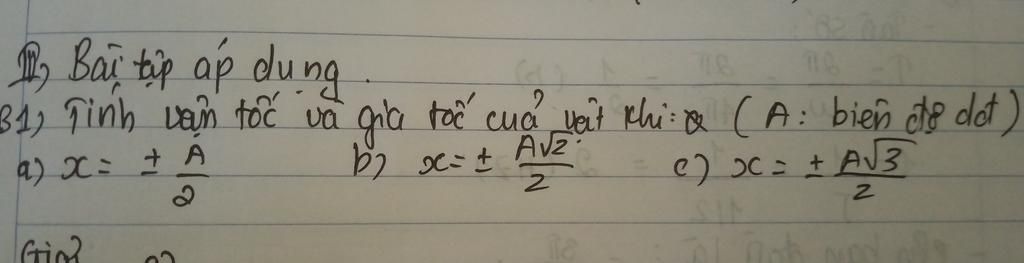 III, Bài tập áp dụng.
B1, Tính vận tốc và gia tốc của vật khi: (A: biên độ dđ)
a) x = ± A/2 b) x = ± A√2/2 c) x = ± A√3/2